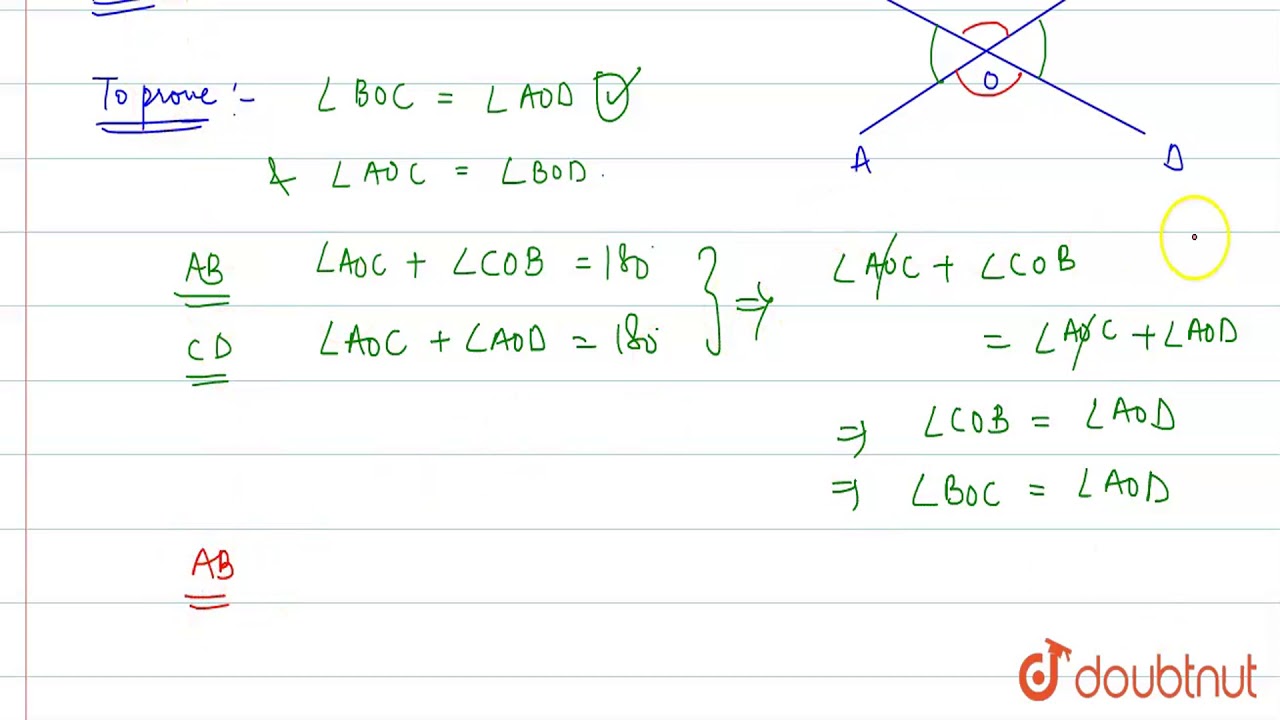 O
To prove :- ∠BOC = ∠AOD
A D
& ∠AOC = ∠BOD.
AB ∠AOC + ∠COB = 180°
CD ∠AOC + ∠AOD = 180°
} ⇒ ∠AOC + ∠COB
= ∠AOC + ∠AOD
⇒ ∠COB = ∠AOD
⇒ ∠BOC = ∠AOD
AB
doubtnut